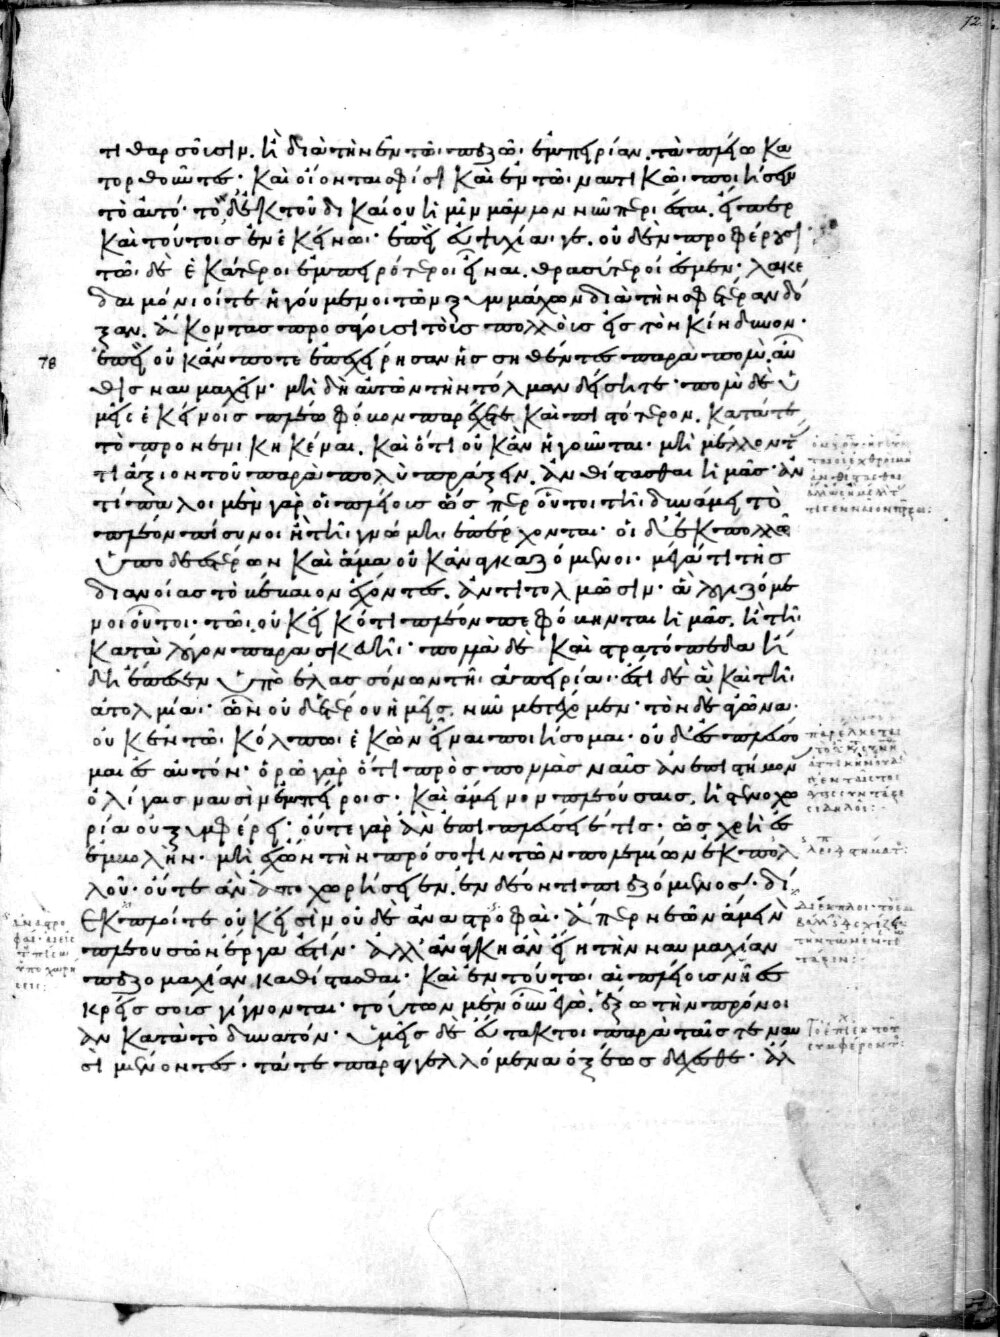 τι θαρσοῦσιν. ἢ διὰ τὴν ἐν τῶ πεζῶ ἐμπειρίαν. τὰ πλείω κα
τορθοῦντες· καὶ οἴονται σφίσι καὶ ἐν τῶ ναυτικῶ ποιήσειν
τὸ αὐτό· τὸ δ' ἐκ τοῦ δικαίου ἡμῖν μᾶλλον νῦν περιέσται. εἴπερ
καὶ τούτοις ἐν ἐκείνω· ἐπεὶ εὐψυχία γε. οὐδὲν προφέρουσι·
τῶ δὲ ἑκάτεροι ἐμπειρότεροι εἶναι. θρασύτεροί ἐσμεν· λακε
δαιμόνιοί τε ἡγούμενοι τῶν ξυμμάχων διὰ τὴν σφετέραν δό
ξαν. ἄκοντας προσάγουσι τοὺς πολλοὺς ἐς τὸν κίνδυνον·
78 ἐπεὶ οὐκ ἄν ποτε ἐπεχείρησαν ἡσσηθέντες παρὰ πολὺ. αὖ
θις ναυμαχεῖν· μὴ δὴ αὐτῶν τὴν τόλμαν δείσητε· πολὺ δὲ ὑ
μεῖς ἐκείνοις πλείω φόβον παρέχετε καὶ πιστότερον. κατά τε
τὸ προνενικηκέναι. καὶ ὅτι οὐκ ἂν ἡγοῦνται· μὴ μέλλοντ
τι ἄξιον τοῦ παρὰ πολὺ πράξειν. ἀνθίστασθαι ἡμᾶς· ἀν
τίπαλοι μὲν γὰρ οἱ πλείους ὥσπερ οὗτοι τῆ δυνάμει τὸ
πλέον πίσυνοι ἢ τῆ γνώμη ἐπέρχονται· οἱ δ' ἐκ πολλῶ
ὑποδεεστέρων καὶ ἅμα οὐκ ἀναγκαζόμενοι· μέγα τι τῆς
διανοίας τὸ βέβαιον ἔχοντες. ἀντιτολμῶσιν· ἃ λογιζόμε
νοι οὗτοι· τῶ οὐκ εἰκότι πλέον πεφόβηνται ἡμᾶς. ἢ τῆ
κατὰ λόγον παρασκευῆ· πολλὰ δὲ καὶ στρατόπεδα ἤ
δη ἔπεσεν ὑπὸ ἐλασσόνων τῆ ἀπειρία· ἔστι δὲ ἃ καὶ τῆ
ἀτολμία· ὧν οὐδετέρου ἡμεῖς. νῦν μετέχομεν· τὸν δὲ ἀγῶνα·
οὐκ ἐν τῶ κόλπω ἑκὼν εἶναι ποιήσομαι· οὐδ' ἐσπλεύσο
μαι ἐς αὐτόν· ὁρῶ γὰρ ὅτι πρὸς πολλὰς ναῦς ἀνεπιστήμον
ὀλίγαις ναυσὶν ἐμπείροις· καὶ ἄμεινον πλεούσαις. ἡ στενοχω
ρία οὐ ξυμφέρει· οὔτε γὰρ ἂν ἐπιπλεύσειέ τις· ὡς χρὴ ἐς
ἐμβολὴν· μὴ ἔχων τὴν πρόσοψιν τῶν πολεμίων ἐκ πολ
λοῦ· οὔτε ἂν ἀποχωρήσειεν. ἐν δέοντι πιεζόμενος· δι
έκπλοί τε οὐκ εἰσὶν οὐδὲ ἀναστροφαὶ· ἅπερ νεῶν ἄμεινον
πλεουσῶν ἔργα ἐστίν· ἀλλ' ἀνάγκη ἂν εἴη τὴν ναυμαχίαν
πεζομαχίαν καθίστασθαι· καὶ ἐν τούτω αἱ πλείους νῆες
κρείσσους γίγνονται· τούτων μὲν οὖν ἐγὼ. ἕξω τὴν πρόνοι
αν κατὰ τὸ δυνατόν· ὑμεῖς δὲ εὔτακτοι παρὰ ταῖς τε ναυ
σὶ μένοντες· τά τε παραγγελλόμενα ὀξέως δέχεσθε· ἄλ